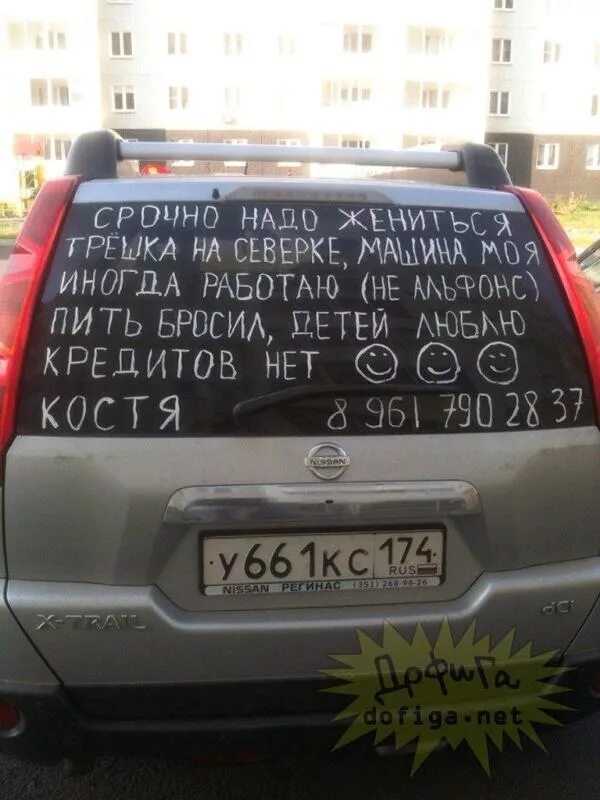 СРОЧНО НАДО ЖЕНИТЬСЯ
ТРЁШКА НА СЕВЕРКЕ, МАШИНА МОЯ
ИНОГДА РАБОТАЮ (НЕ АЛЬФОНС)
ПИТЬ БРОСИЛ, ДЕТЕЙ ЛЮБЛЮ
КРЕДИТОВ НЕТ
КОСТЯ 8 961 790 28 37
NISSAN
У661КС 174
RUS
NISSAN РЕГИНАС (351) 268-96-26
X-TRAIL dCi
ДоФиГа
dofiga.net